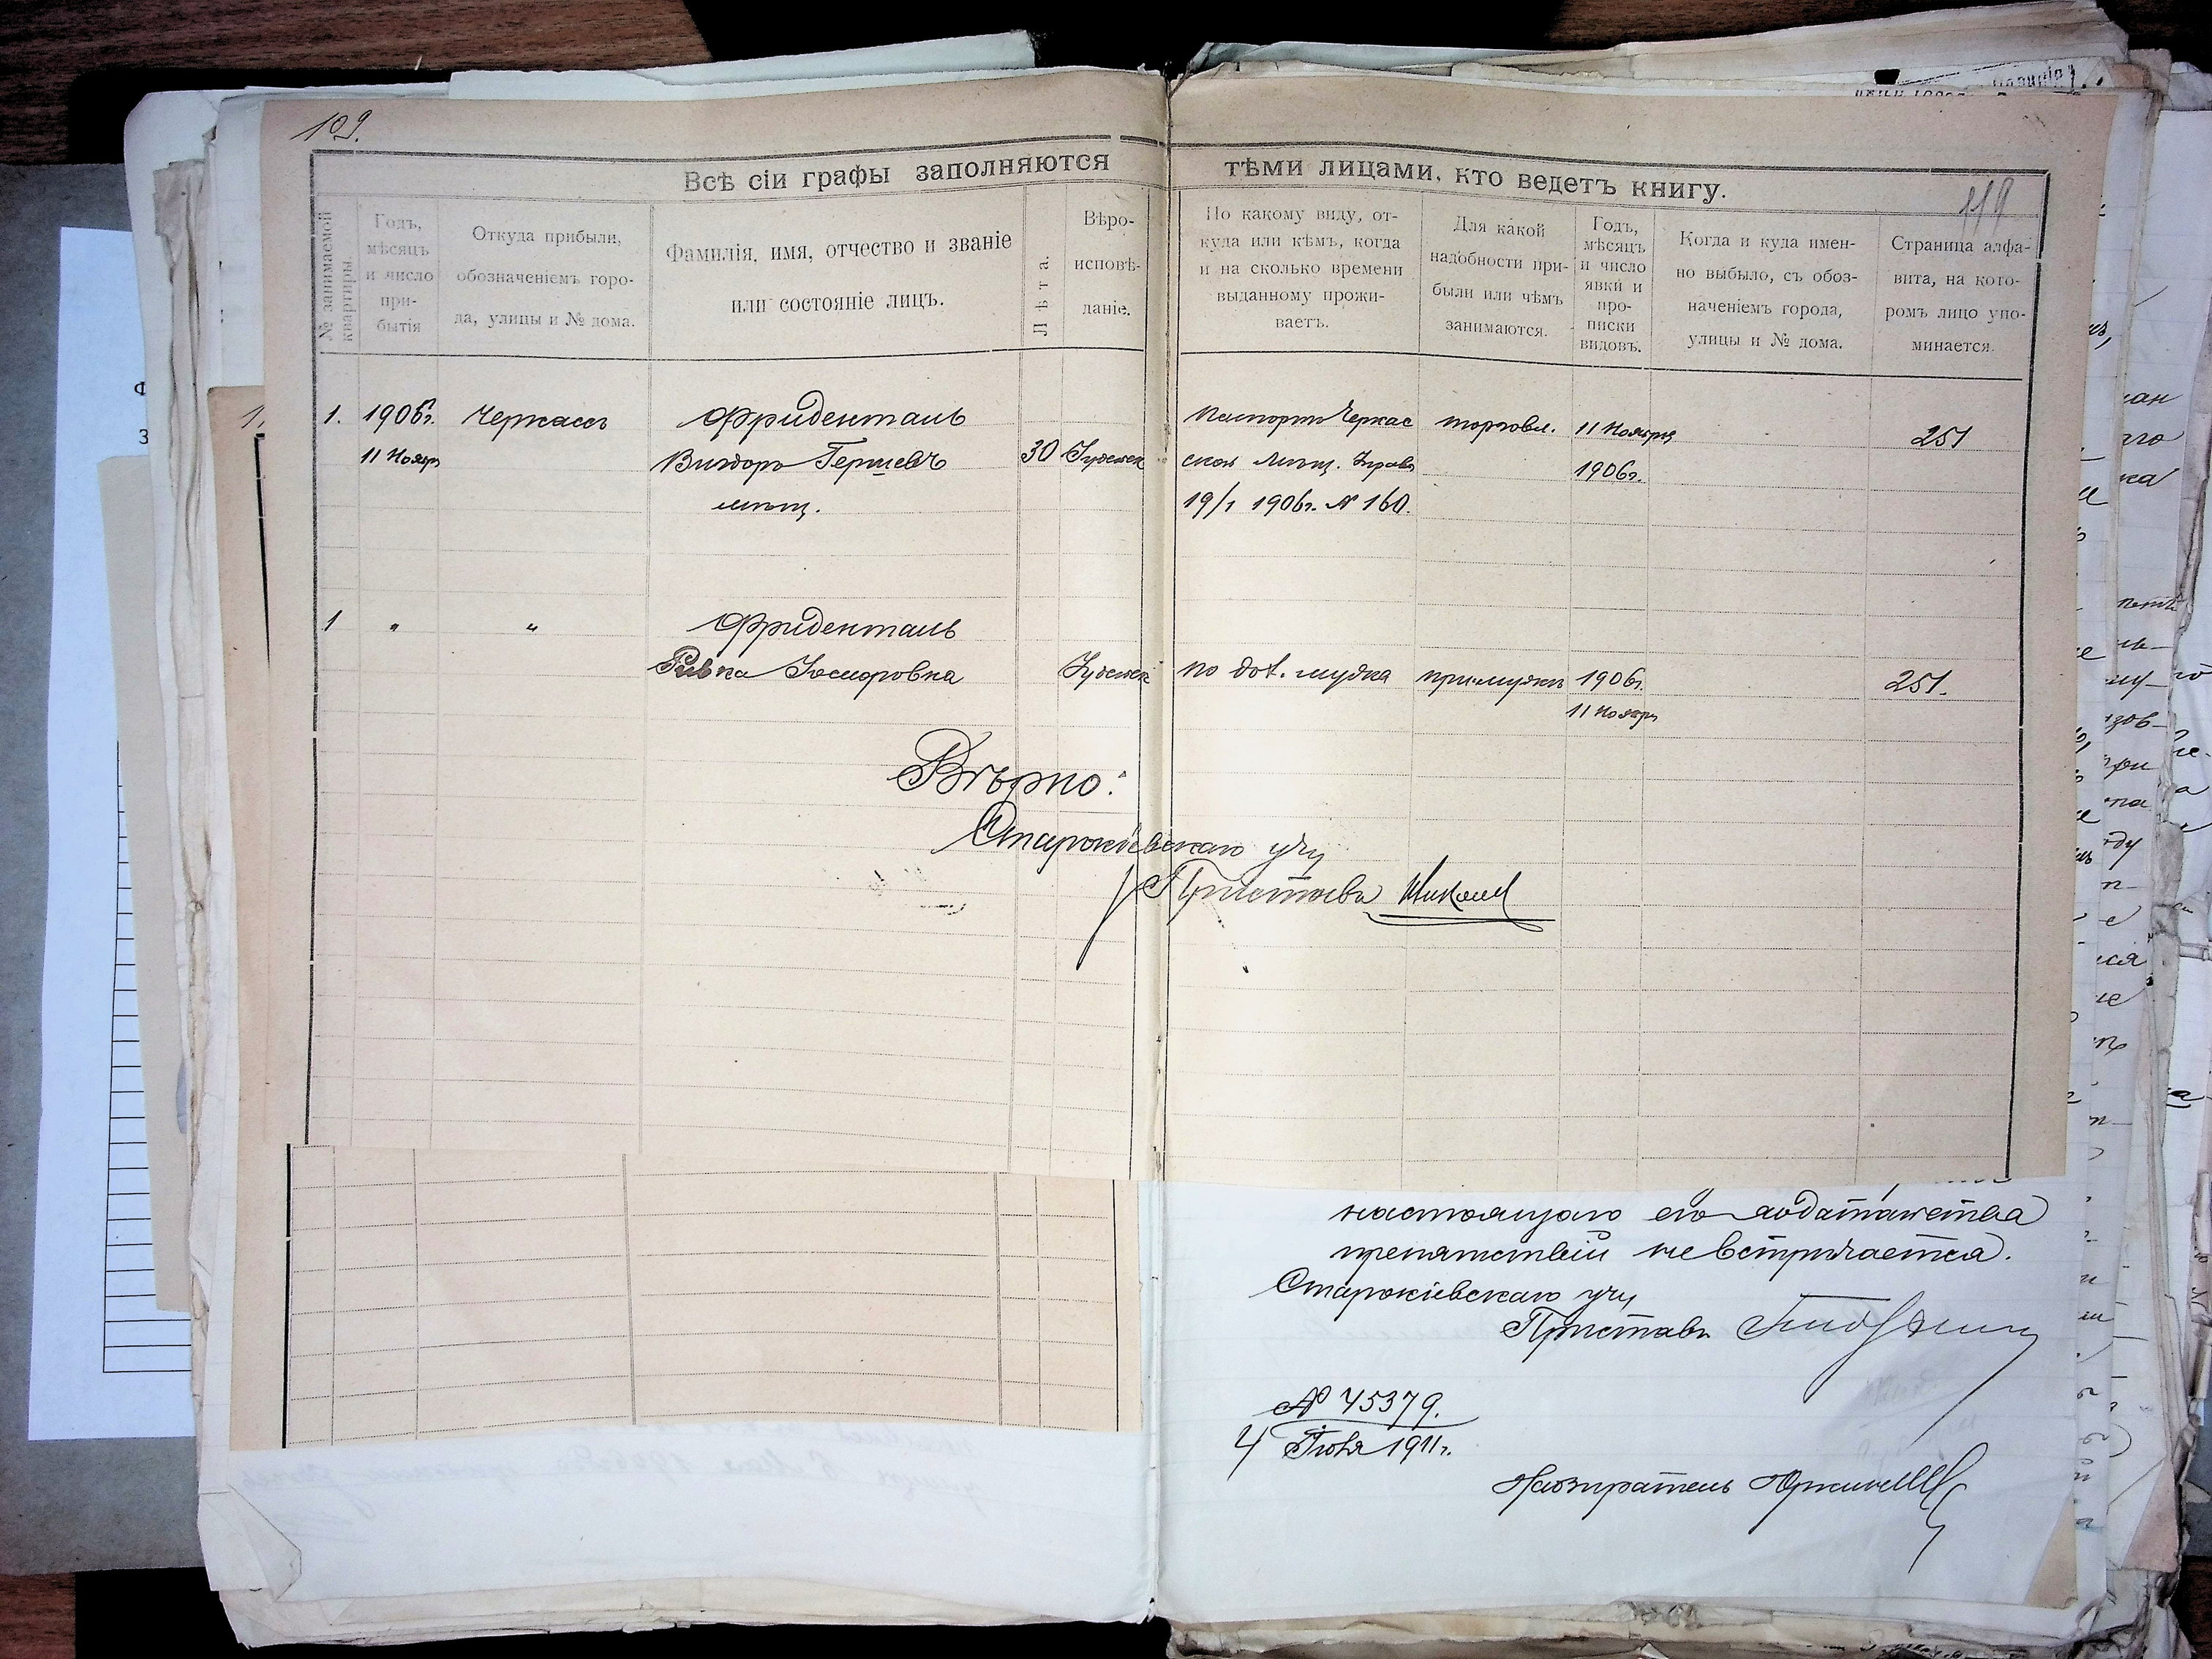 109.
Всѣ сіи графы заполняются тѣми лицами, кто ведетъ книгу.
119
№ занимаемой
квартиры.
Годъ,
мѣсяцъ
и число
при-
бытія
Откуда прибыли,
обозначеніемъ горо-
да, улицы и № дома.
Фамилія, имя, отчество и званіе
или состояніе лицъ.
Лѣта.
Вѣро-
исповѣ-
даніе.
По какому виду, от-
куда или кѣмъ, когда
и на сколько времени
выданному прожи-
ваетъ.
Для какой
надобности при-
были или чѣмъ
занимаются.
Годъ,
мѣсяцъ
и число
явки и
про-
писки
видовъ.
Когда и куда имен-
но выбыло, съ обоз-
наченіемъ города,
улицы и № дома.
Страница алфа-
вита, на кото-
ромъ лицо упо-
минается.
1. 1906г. Черкассъ Фриденталь Паспортъ Черкас торговл. 11 Ноября 251
11 Ноябр 30 Іудейск ской мѣщ. Управ 1906г.
мѣщ. 19/I 1906г. № 160.
1 " " Фриденталь
Ривка Іосифовна Іудейск по док. мужа при мужѣ 1906г. 251.
11 Ноябр
Вѣрно:
Старокіевскаго уч
Пристава
настоящаго его ходатайства
препятствій не встрѣчается.
Старокіевскаго уч,
Приставъ
№ 45379.
4 Іюня 1911г.
Надзиратель